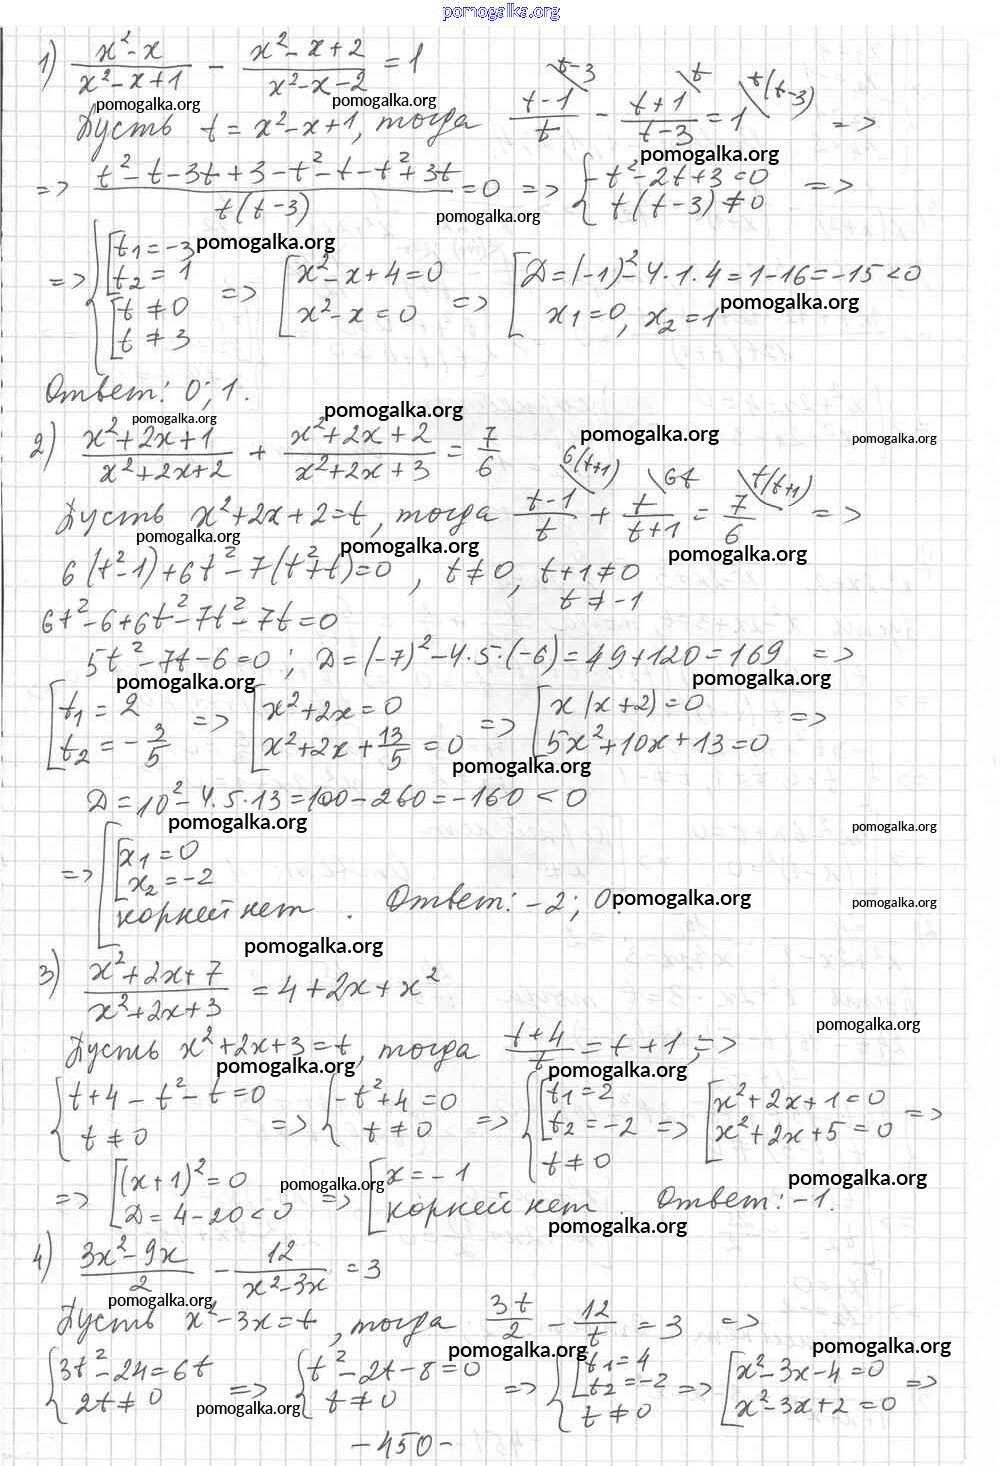 pomogalka.org
1) (x²-x)/(x²-x+1) - (x²-x+2)/(x²-x-2) = 1
pomogalka.org pomogalka.org
Пусть t = x²-x+1, тогда (t-1)/t - (t+1)/(t-3) = 1 =>
t-3 t t(t-3)
pomogalka.org
=> (t²-t-3t+3-t²-t-t²+3t)/(t(t-3)) = 0 => { t²-2t+3=0 =>
t(t-3)≠0
pomogalka.org
=> { [ t₁=-3 pomogalka.org
t₂=1
[ t≠0
t≠3
=> [ x²-x+4=0
x²-x=0
=> [ D=(-1)²-4·1·4=1-16=-15<0
x₁=0, x₂=1 pomogalka.org
Ответ: 0; 1.
pomogalka.org pomogalka.org
2) (x²+2x+1)/(x²+2x+2) + (x²+2x+2)/(x²+2x+3) = 7/6
pomogalka.org pomogalka.org
6(t+1) 6t t(t+1)
Пусть x²+2x+2=t, тогда (t-1)/t + t/(t+1) = 7/6 =>
pomogalka.org pomogalka.org pomogalka.org
6(t²-1)+6t²-7(t²+t)=0, t≠0, t+1≠0
t≠-1
6t²-6+6t²-7t²-7t=0
5t²-7t-6=0; D=(-7)²-4·5·(-6)=49+120=169 =>
pomogalka.org pomogalka.org
[ t₁=2
t₂=-3/5
=> [ x²+2x=0
x²+2x+13/5=0
=> [ x(x+2)=0
5x²+10x+13=0 =>
pomogalka.org
D=10²-4·5·13=100-260=-160<0
pomogalka.org pomogalka.org
=> [ [ x₁=0
x₂=-2
корней нет. Ответ: -2; 0. pomogalka.org pomogalka.org
pomogalka.org
3) (x²+2x+7)/(x²+2x+3) = 4+2x+x²
pomogalka.org
Пусть x²+2x+3=t, тогда (t+4)/t = t+1, =>
pomogalka.org pomogalka.org
{ t+4-t²-t=0
t≠0
=> { -t²+4=0
t≠0
=> { [ t₁=2
t₂=-2
t≠0
=> [ x²+2x+1=0
x²+2x+5=0 =>
=> [ (x+1)²=0
D=4-20<0
pomogalka.org
=> [ x=-1
корней нет. Ответ: -1.
pomogalka.org pomogalka.org
4) (3x²-9x)/2 - 12/(x²-3x) = 3
pomogalka.org
Пусть x²-3x=t, тогда 3t/2 - 12/t = 3 =>
pomogalka.org pomogalka.org
{ 3t²-24=6t
2t≠0
=> { t²-2t-8=0
t≠0
=> { [ t₁=4
t₂=-2
t≠0
=> [ x²-3x-4=0
x²-3x+2=0 =>
pomogalka.org
-450-